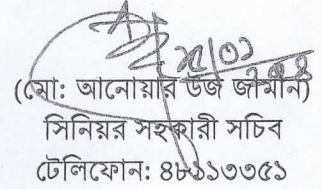 (মো: আনোয়ার উজ জামান)
সিনিয়র সহকারী সচিব
টেলিফোন: ৪৮১১৩৩৫১